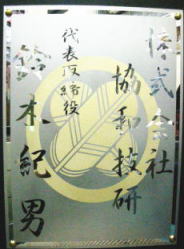 株式会社
協和技研
代表取締役
鈴木紀男